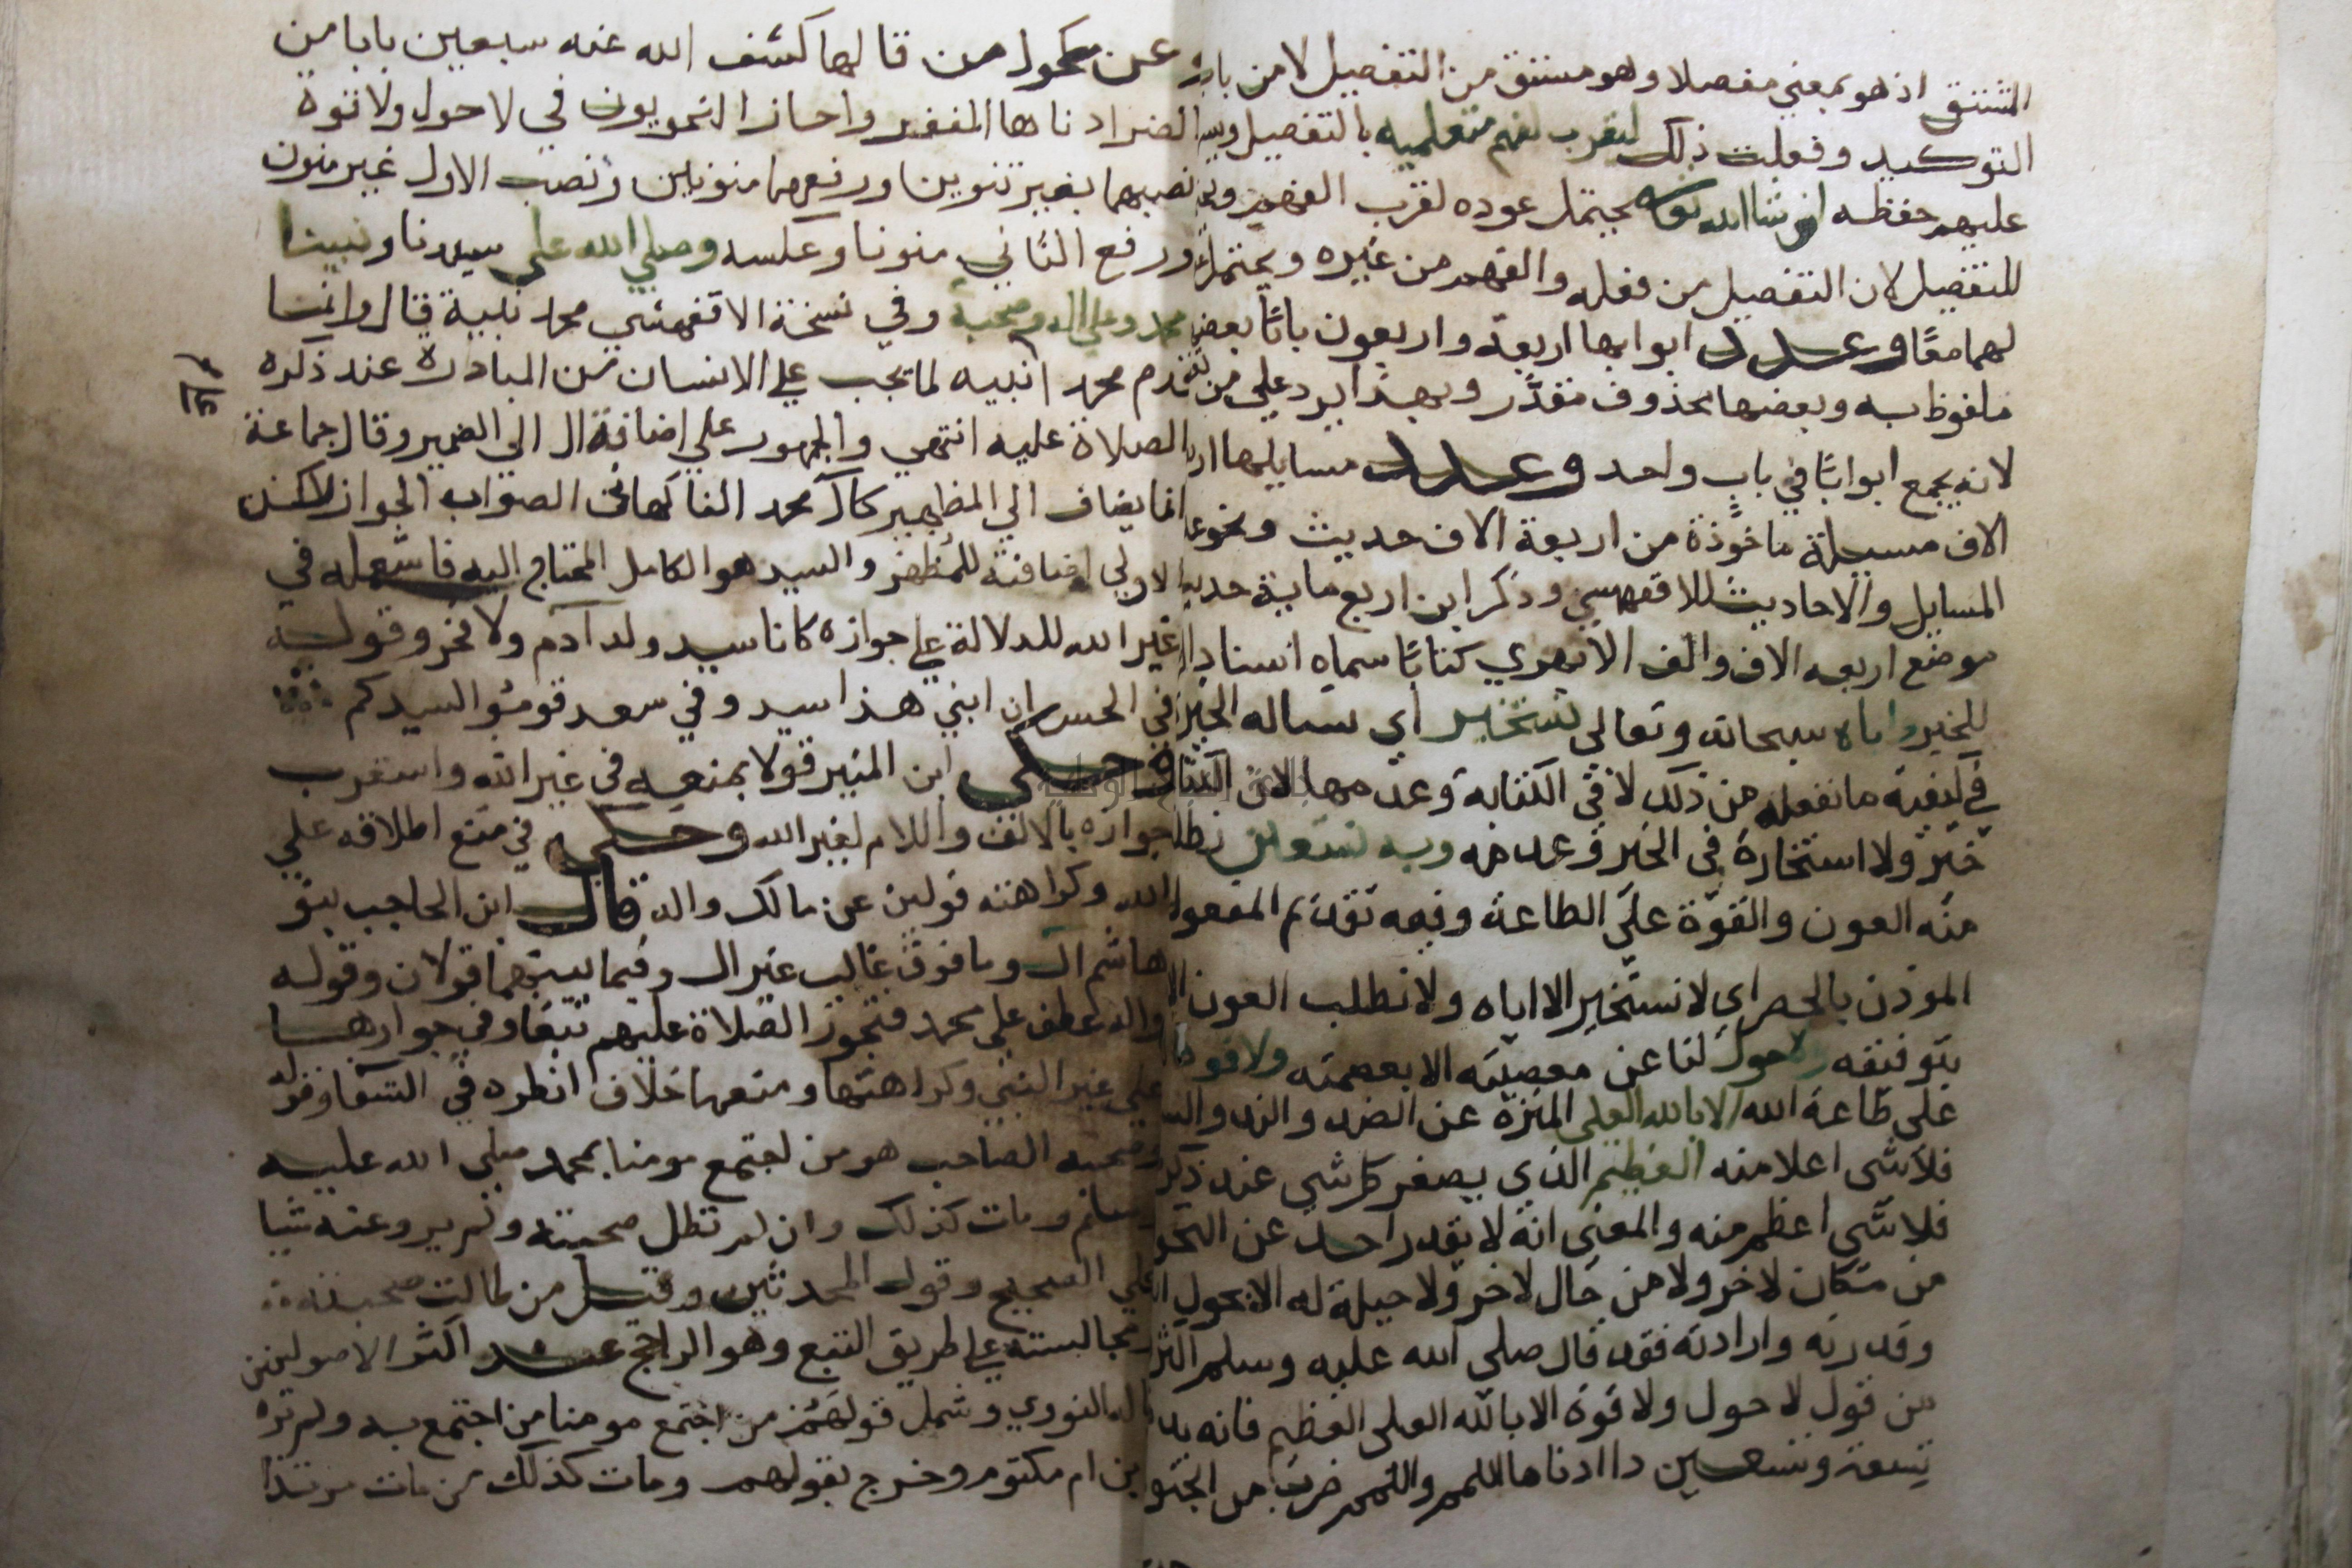 المشتق اذ هو بمعني مفصلا وهو مشتق من التفصيل لا من باب
التوكيد وفعلت ذلك ليقرب لفهم متعلميه بالتفصيل
عليهم حفظه ان شا الله يحتمل عوده لقرب الفهم
للتفصيل لان التفصيل من فعله والفهم من غيره ويحتمل
لهما معًا وعدد ابوابها اربعة واربعون بابًا بعضها
ملفوظ به وبعضها محذوف مقدّر وبهذا يرد علي من
لانه يجمع ابوابًا في باب واحد وعدد مسايلها
الاف مسيلة ماخوذة من اربعة الاف حديث
المسايل والاحاديث للاقفهسي وذكر ابن اربع ماية حديث
موضع اربعه الاف والف الابهري كتابًا سماه
للخير واياه سبحانه وتعالي نستخير اي نساله الخير
في كيفية ما نفعله من ذلك لا في الكتابة وعدمها لان الكتاب
خير ولا استخارة في الخير وعدمه وبه نستعين نطلب
منه العون والقوة علي الطاعة وفيه تقديم المفعول
الموذن بالحصر اي لا نستخير الا اياه ولا نطلب العون
بتوفيقه ولا حول لنا عن معصيته الا بعصمته ولا قوة
علي طاعة الله الا بالله العلي المنزه عن الضد والند
فلا شي اعلا منه العظيم الذي يصغر كل شي عند ذكر
فلا شي اعظم منه والمعني انه لا يقدر احد عن
من مكان لاخر ولا من حال لاخر ولا حيلة له الا بحول
وقدرته وارادته فقد قال صلي الله عليه وسلم
من قول لا حول ولا قوة الا بالله العلي العظيم فانه
تسعة وتسعين داا ادناها اللمم واللمم ضرب من الجنون
عن مكحول من قالها كشف الله عنه سبعين بابا من
الضر ادناها الفقر واجاز النحويون في لا حول ولا قوة
نصبهما بغير تنوين ورفعهما منونين ونصب الاول غير منون
ورفع الثاني منونا وعكسه وصلي الله علي سيدنا ونبينا
محمد وعلي اله وصحبه وفي نسخة الاقفهسي محمد نبيه قال وانما
قدم محمد انبيه لما يجب علي الانسان من المبادرة عند ذكره
الصلاة عليه انتهي والجمهور علي اضافة ال الي الضمير وقال جماعة
انما يضاف الي المظهر كال محمد الفاكهاني الصواب الجواز لاكن
الاولي اضافته للمظهر والسيد هو الكامل المحتاج اليه فاستعمله في
غير الله للدلالة علي جوازه كانا سيد ولد آدم ولا فخر وقوله
في الحسن ان ابني هذا سيد وفي سعد قوموا لسيدكم
وحكي ابن المنير قولا بمنعه في غير الله واستغرب
جوازه بالالف واللام لغير الله وحكي في منع اطلاقه علي
الله وكراهته قولين عن مالك واله قال ابن الحاجب بنو
هاشم ال وما فوق غالب غير ال وفيما بينهما قولان وقوله
واله عطف علي محمد فتجوز الصلاة عليهم تبعا وفي جوازها
علي غير النبي وكراهتها ومنعها خلاف انظره في الشفا وقوله
وصحبه الصاحب هو من اجتمع مومنا بمحمد صلي الله عليه
وسلم ومات كذلك وان لم تطل صحبته ولم يرو عنه شيا
علي الصحيح وقول المحدثين وقيل من طالت صحبته
ومجالسته علي طريق التبع وهو الراجح عند اكثر الاصوليين
قاله النووي وشمل قولهم من اجتمع مومنا من اجتمع به ولم يره
كابن ام مكتوم وخرج بقولهم ومات كذلك من مات مرتدا